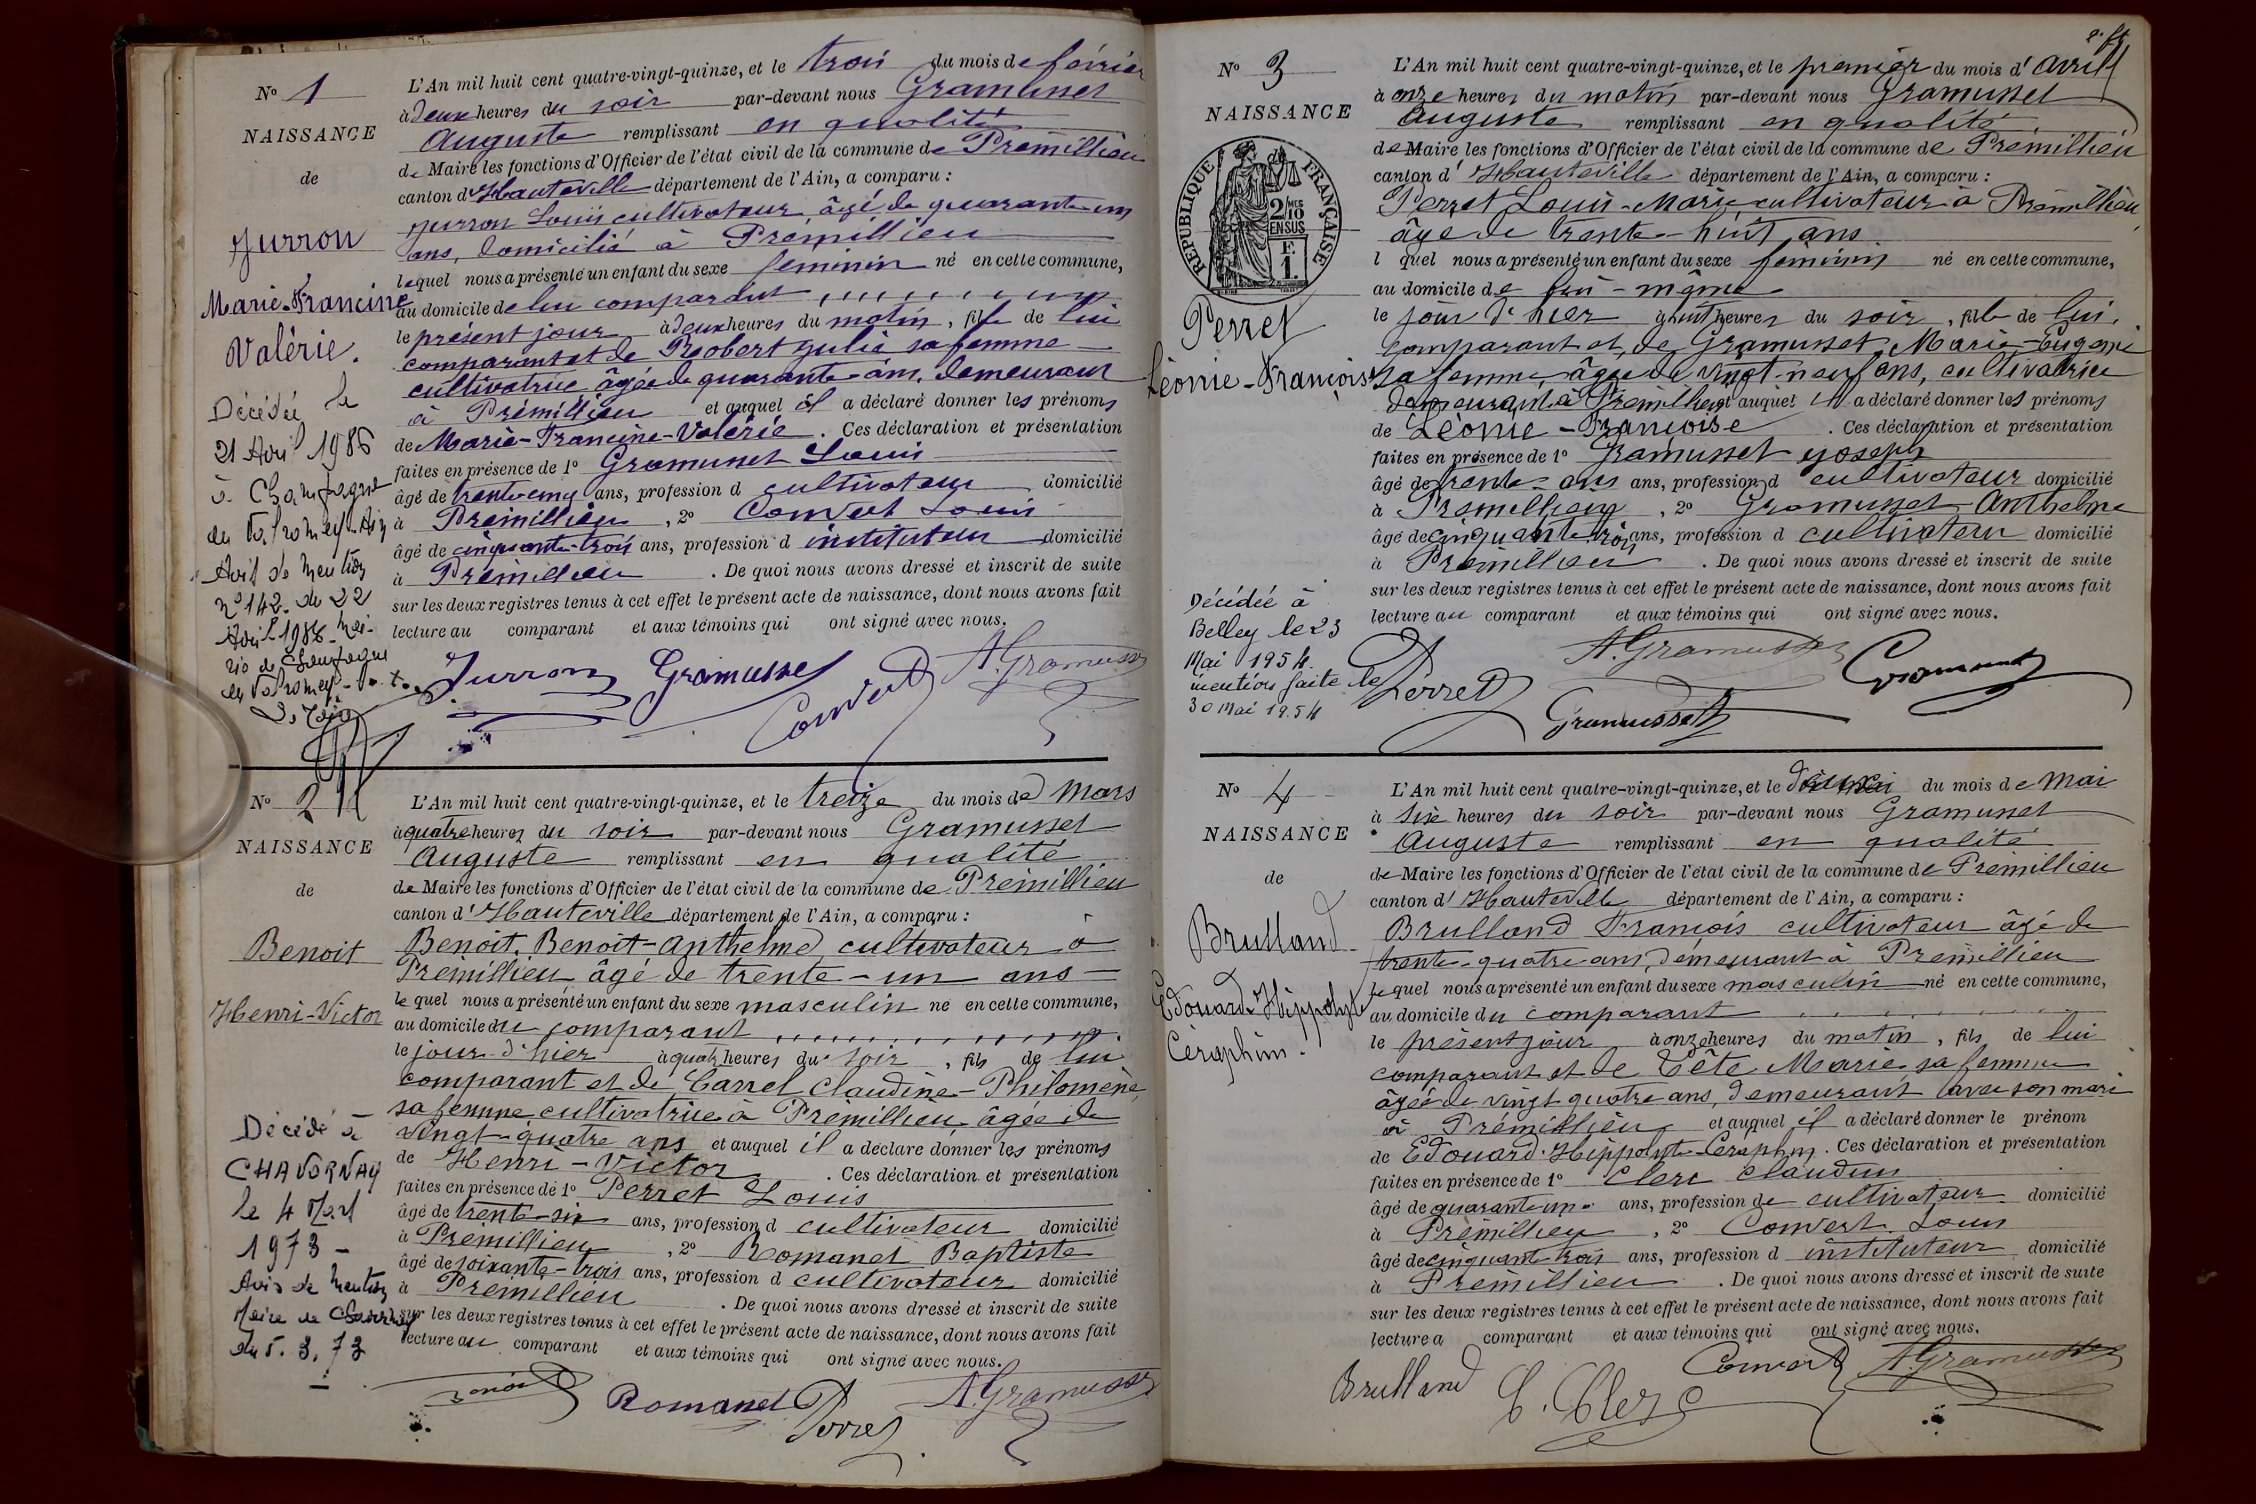 N° 1
NAISSANCE
de
Jurron
Marie-Francine
Valérie.
Décédée le
21 Avril 1986
à Champagne
en Valromey-Ain
Avis de Mention
n° 142 du 22
Avril 1986
L'An mil huit cent quatre-vingt-quinze, et le trois du mois de février
à deux heures du soir par-devant nous Gramusset
Auguste remplissant en qualité
de Maire les fonctions d'Officier de l'état civil de la commune de Prémillieu
canton d'Hauteville département de l'Ain, a comparu :
Jurron Louis cultivateur, âgé de quarante-un
ans, domicilié à Prémillieu
lequel nous a présenté un enfant du sexe féminin né en cette commune,
au domicile de lui comparant
le présent jour à deux heures du matin, fille de lui
comparant et de Robert Julie sa femme
cultivatrice âgée de quarante ans, demeurant
à Prémillieu et auquel il a déclaré donner les prénoms
de Marie-Francine-Valérie. Ces déclaration et présentation
faites en présence de 1° Gramusset Louis
âgé de trente-cinq ans, profession d cultivateur domicilié
à Prémillieu, 2° Convert Louis
âgé de cinquante-trois ans, profession d instituteur domicilié
à Prémillieu. De quoi nous avons dressé et inscrit de suite
sur les deux registres tenus à cet effet le présent acte de naissance, dont nous avons fait
lecture au comparant et aux témoins qui ont signé avec nous.
Jurron Gramusset Convert A. Gramusset
N° 2
NAISSANCE
de
Benoit
Henri-Victor
Décédé à
CHAVORNAY
le 4 Mars
1973 -
Avis de Mention
Maire de Chavornay
du 5. 3. 73
L'An mil huit cent quatre-vingt-quinze, et le treize du mois de Mars
à quatre heures du soir par-devant nous Gramusset
Auguste remplissant en qualité
de Maire les fonctions d'Officier de l'état civil de la commune de Prémillieu
canton d'Hauteville département de l'Ain, a comparu :
Benoit, Benoit-Anthelme, cultivateur à
Prémillieu, âgé de trente-un ans
lequel nous a présenté un enfant du sexe masculin né en cette commune,
au domicile du comparant
le jour d'hier à quatre heures du soir, fils de lui
comparant et de Carrel Claudine-Philomène,
sa femme cultivatrice à Prémillieu âgée de
vingt-quatre ans et auquel il a déclaré donner les prénoms
de Henri-Victor. Ces déclaration et présentation
faites en présence de 1° Perret Louis
âgé de trente-six ans, profession d cultivateur domicilié
à Prémillieu, 2° Romanet Baptiste
âgé de soixante-trois ans, profession d cultivateur domicilié
à Prémillieu. De quoi nous avons dressé et inscrit de suite
sur les deux registres tenus à cet effet le présent acte de naissance, dont nous avons fait
lecture au comparant et aux témoins qui ont signé avec nous.
Benoit Romanet Perret A. Gramusset
N° 3
NAISSANCE
RÉPUBLIQUE FRANÇAISE
2/10 MES
EN SUS
F.
1.
Perret
Léonie-Françoise
Décédée à
Belley le 23
Mai 1954.
mention faite le
30 mai 1954
L'An mil huit cent quatre-vingt-quinze, et le premier du mois d'avril
à onze heures du matin par-devant nous Gramusset
Auguste remplissant en qualité
de Maire les fonctions d'Officier de l'état civil de la commune de Prémillieu
canton d'Hauteville département de l'Ain, a comparu :
Perret Louis-Marie, cultivateur à Prémillieu,
âgé de trente-huit ans
l quel nous a présenté un enfant du sexe féminin né en cette commune,
au domicile de lui-même
le jour d'hier à huit heures du soir, fille de lui,
comparant et de Gramusset Marie-Eugénie
sa femme, âgée de vingt-neuf ans, cultivatrice
demeurant à Prémillieu et auquel il a déclaré donner les prénoms
de Léonie-Françoise. Ces déclaration et présentation
faites en présence de 1° Gramusset Joseph
âgé de trente-ans ans, profession d cultivateur domicilié
à Prémillieu, 2° Gramusset Anthelme
âgé de cinquante-trois ans, profession d cultivateur domicilié
à Prémillieu. De quoi nous avons dressé et inscrit de suite
sur les deux registres tenus à cet effet le présent acte de naissance, dont nous avons fait
lecture au comparant et aux témoins qui ont signé avec nous.
Perret A. Gramusset Gramusset
Gramusset
N° 4
NAISSANCE
de
Brulland
Edouard-Hippolyte
Céraphin.
L'An mil huit cent quatre-vingt-quinze, et le du mois de Mai
à six heures du soir par-devant nous Gramusset
Auguste remplissant en qualité
de Maire les fonctions d'Officier de l'état civil de la commune de Prémillieu
canton d'Hauteville département de l'Ain, a comparu :
Brulland François cultivateur âgé de
trente-quatre ans, demeurant à Prémillieu
lequel nous a présenté un enfant du sexe masculin né en cette commune,
au domicile du comparant
le présent jour à onze heures du matin, fils de lui
comparant et de Tête Marie, sa femme
âgée de vingt quatre ans, demeurant avec son mari
à Prémillieu et auquel il a déclaré donner le prénom
de Edouard-Hippolyte-Céraphin. Ces déclaration et présentation
faites en présence de 1° Clerc Claudin
âgé de quarante-un ans, profession de cultivateur domicilié
à Prémillieu, 2° Convert Louis
âgé de cinquante trois ans, profession d instituteur domicilié
à Prémillieu. De quoi nous avons dressé et inscrit de suite
sur les deux registres tenus à cet effet le présent acte de naissance, dont nous avons fait
lecture a comparant et aux témoins qui ont signé avec nous.
Brulland C. Clerc Convert A. Gramusset